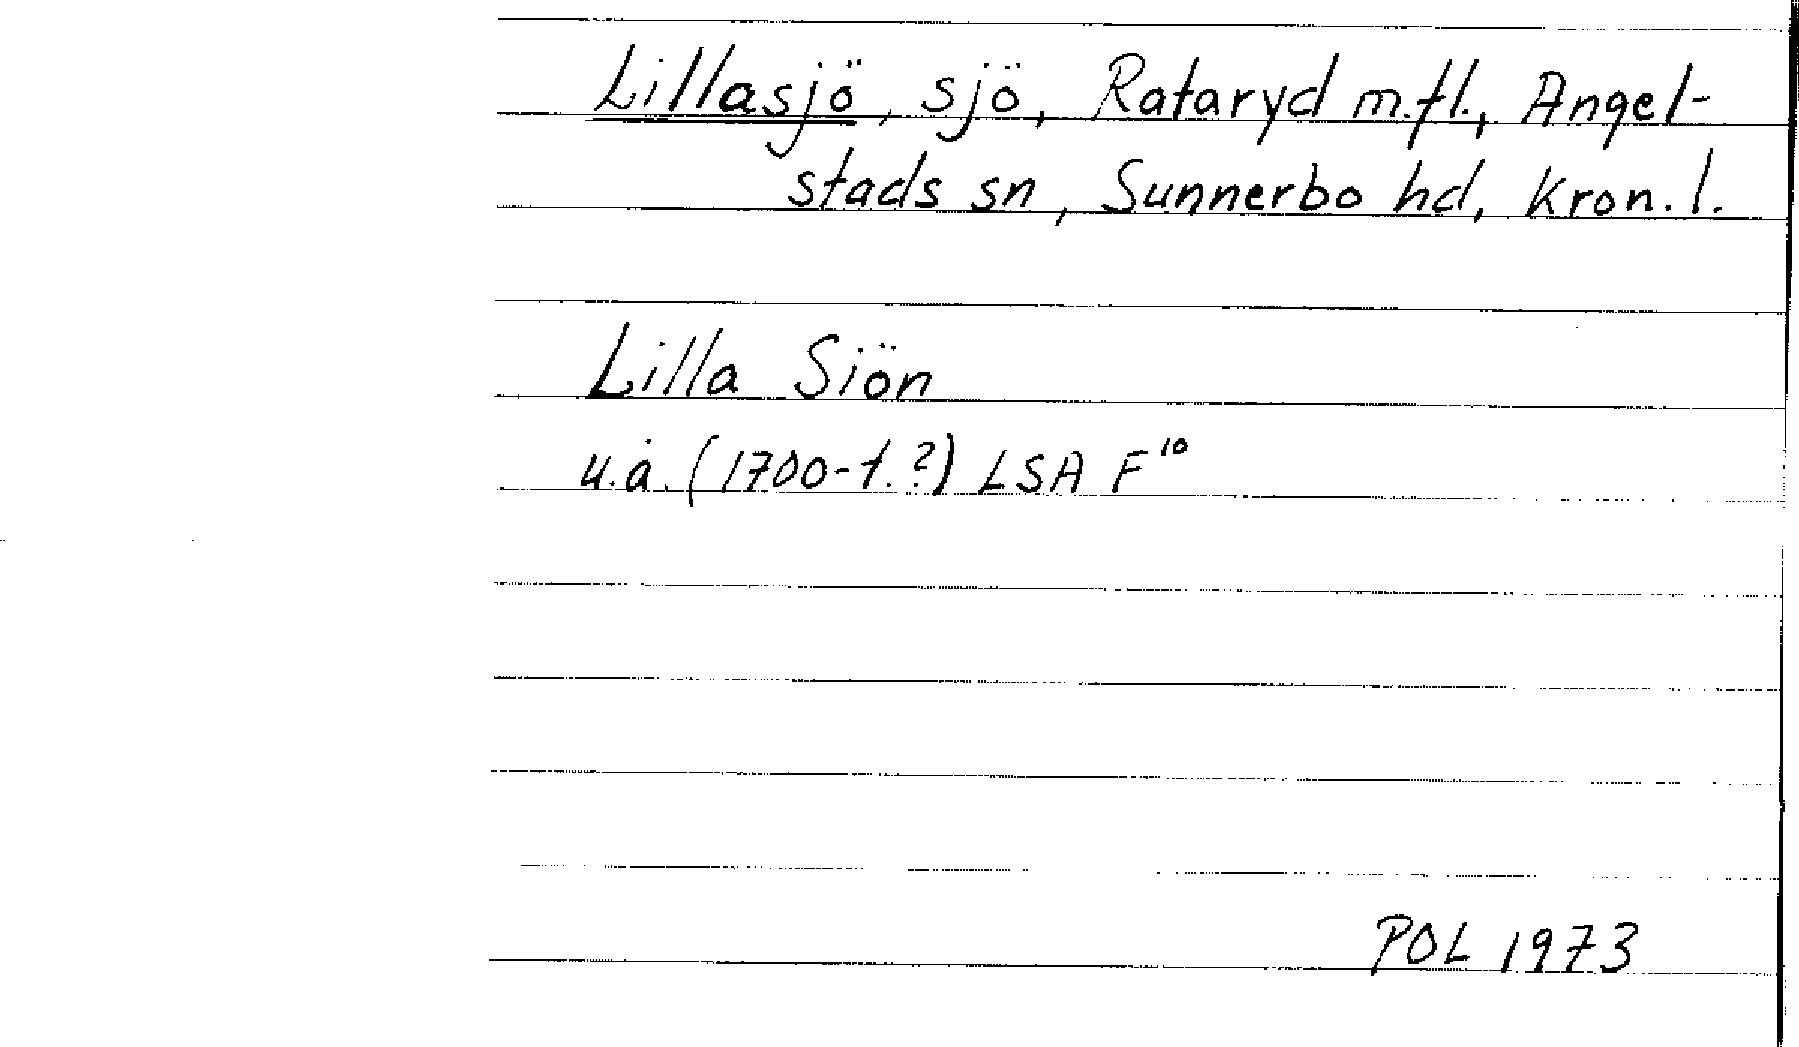 Lillasjö, sjö, Rataryd m.fl., Angel-
stads sn, Sunnerbo hd, Kron. l.
Lilla Siön
u.å. (1700-t.?) LSA F¹⁰
POL 1973